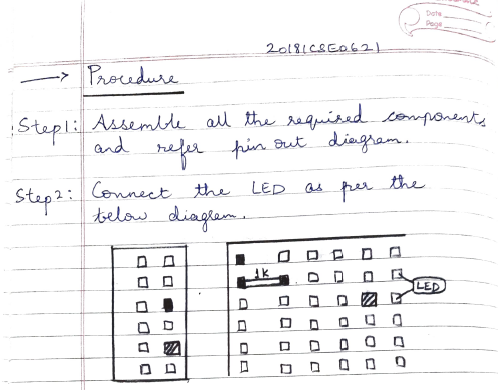 Date
Page
20181CSE0621
→ Procedure
Step1: Assemble all the required components
and refer pin out diagram.
Step2: Connect the LED as per the
below diagram.
1K
LED